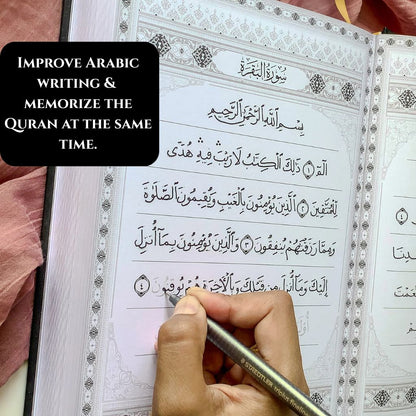 IMPROVE ARABIC
WRITING &
MEMORIZE THE
QURAN AT THE SAME
TIME.
سُورَةُ البَقَرَة
بِسْمِ ٱللَّهِ ٱلرَّحْمَٰنِ ٱلرَّحِيمِ
الٓمٓ ١ ذَٰلِكَ ٱلْكِتَٰبُ لَا رَيْبَ فِيهِ هُدًى
لِّلْمُتَّقِينَ ٢ ٱلَّذِينَ يُؤْمِنُونَ بِٱلْغَيْبِ وَيُقِيمُونَ ٱلصَّلَوٰةَ
وَمِمَّا رَزَقْنَٰهُمْ يُنفِقُونَ ٣ وَٱلَّذِينَ يُؤْمِنُونَ بِمَآ أُنزِلَ
إِلَيْكَ وَمَآ أُنزِلَ مِن قَبْلِكَ وَبِٱلْءَاخِرَةِ هُمْ يُوقِنُونَ ٤
STAEDTLER